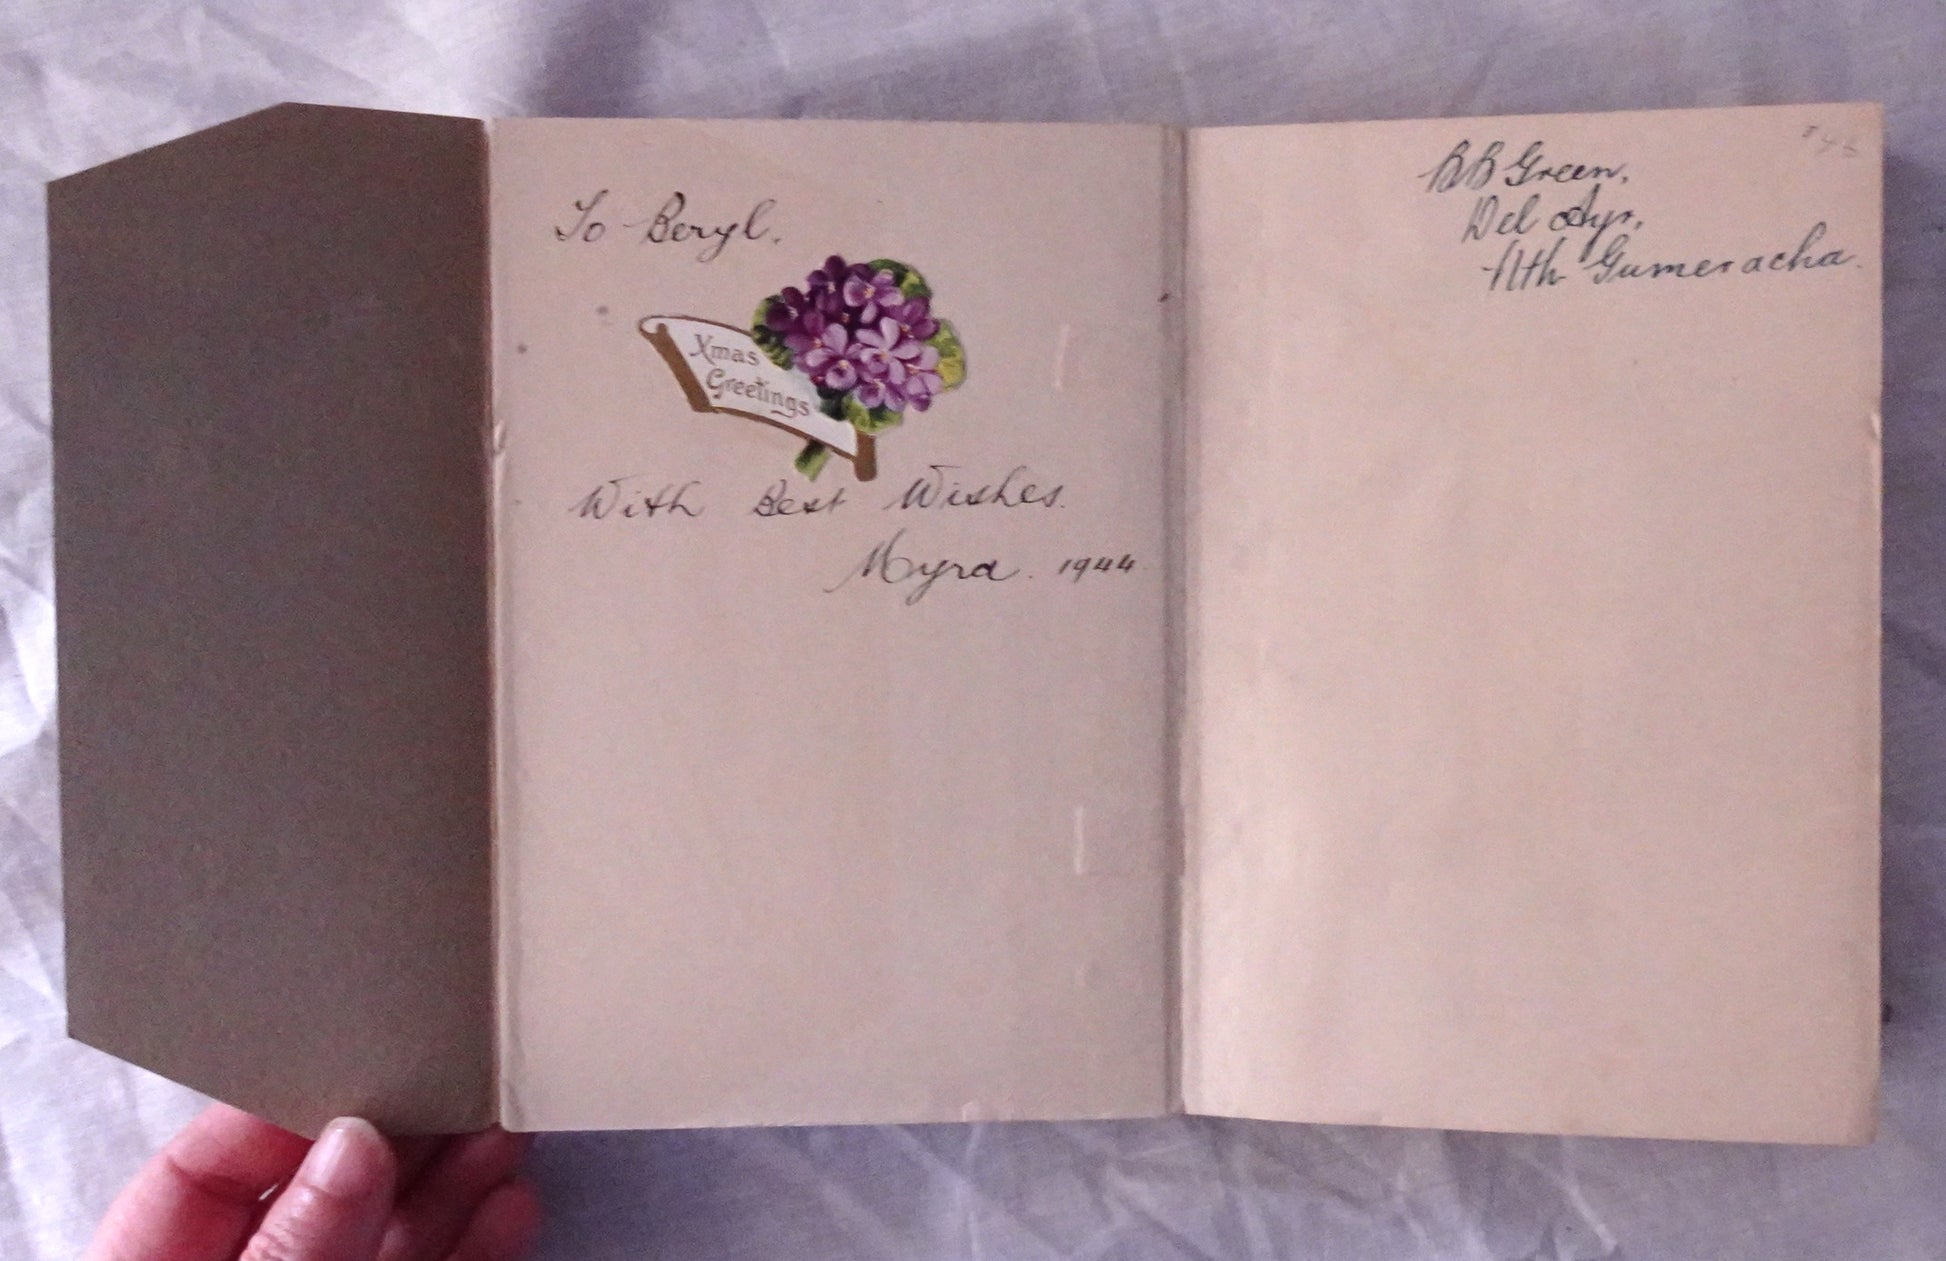 To Beryl.
Xmas
Greetings
With Best Wishes.
Myra. 1944.
BB Green,
Del Ayr,
Nth Gumeracha.